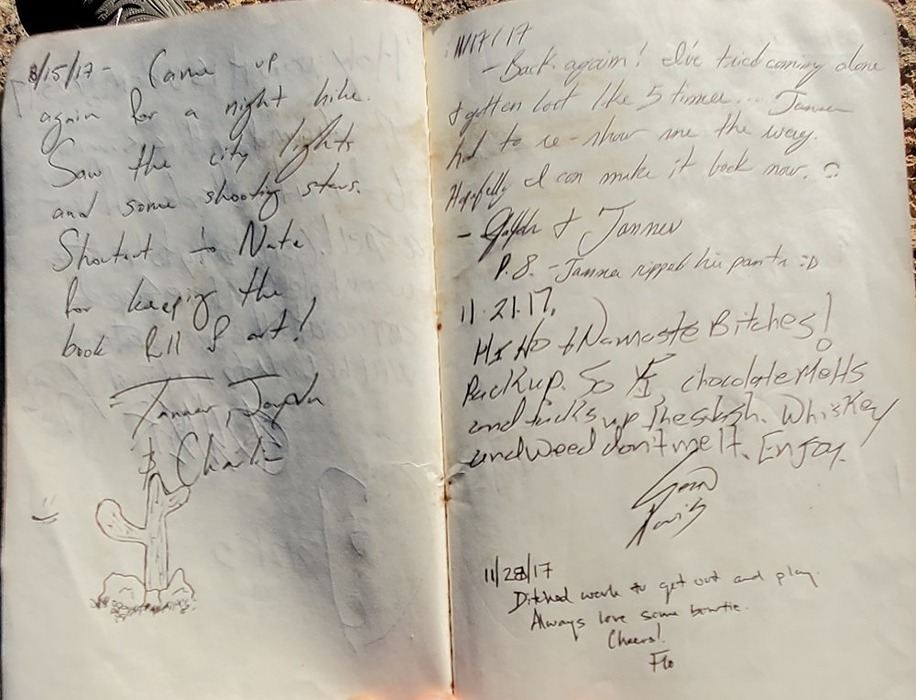 8/15/17 - Came up
again for a night hike.
Saw the city lights
and some shooting stars.
Shoutout to Nate
for keeping the
book full of art!
Tanner, Jayda
& Charlie
11/17/17
- Back again! I've tried coming alone
& gotten lost like 5 times... Tanner
had to re-show me the way.
Hopefully I can make it back now. :)
- & Tanner
P.S. - Tanner ripped his pants :D
11.21.17.
Hi Ho & Namaste Bitches!
Backup. So chocolate Melts
and fucks up the stash. Whiskey
and weed don't melt. Enjoy.
11/28/17
Ditched work to get out and play.
Always love some bowtie.
Cheers!
Flo